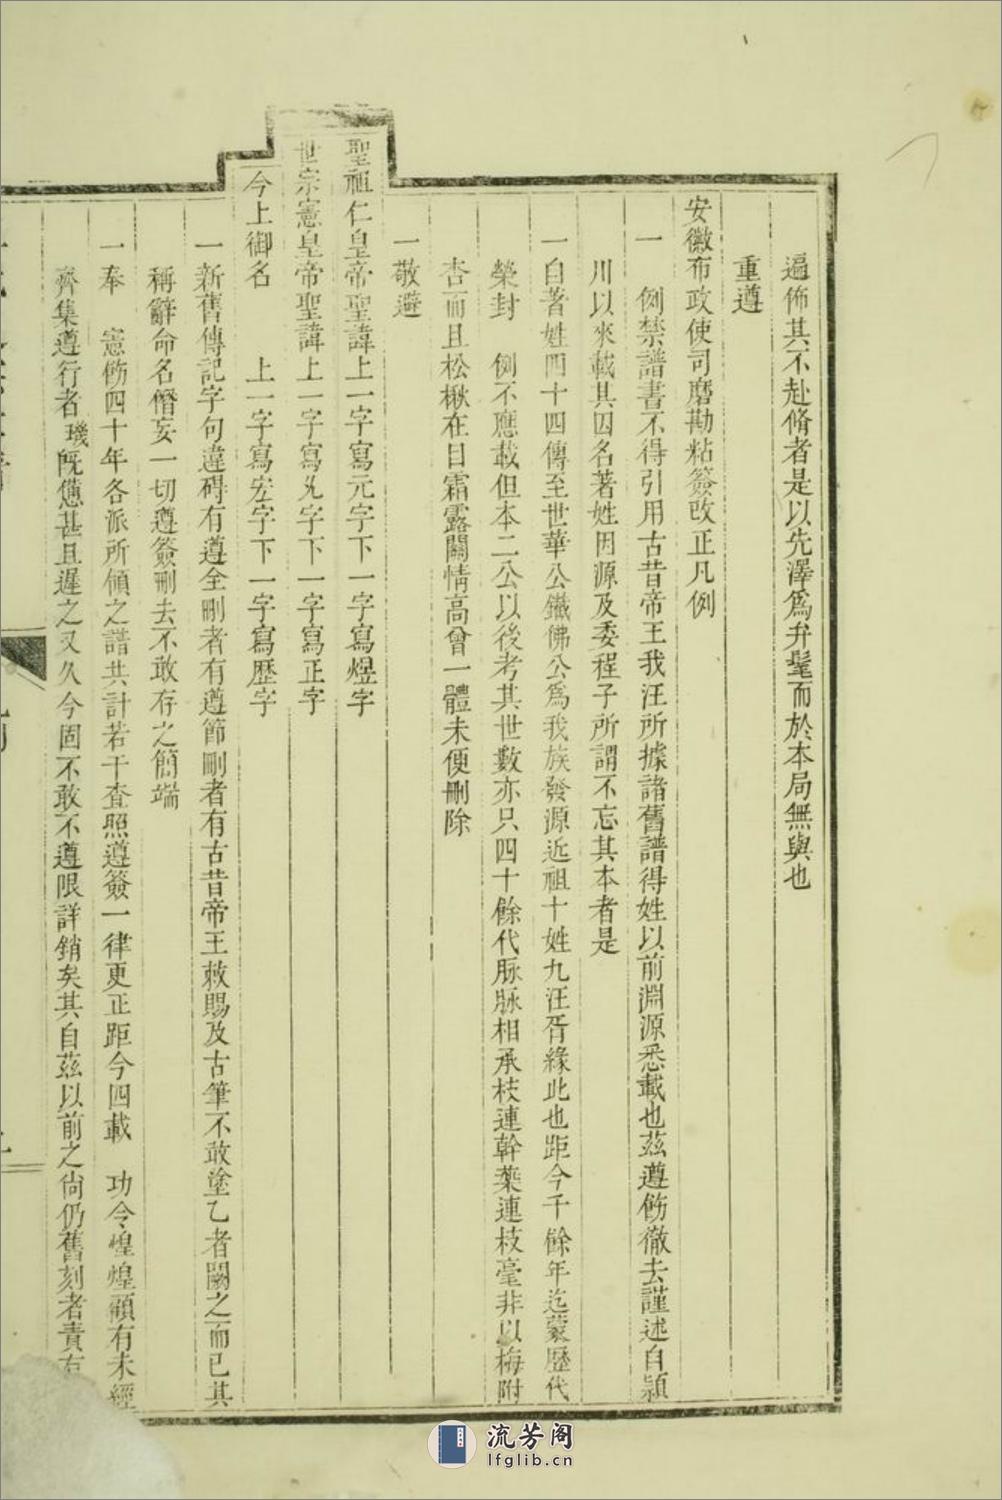 遍佈其不赴脩者是以先澤爲弁髦而於本局無與也
重遵
安徽布政使司磨勘粘簽改正凡例
一　例禁譜書不得引用古昔帝王我汪所據諸舊譜得姓以前淵源悉載也茲遵飭徹去謹述自潁
川以來載其因名著姓因源及委程子所謂不忘其本者是
一自著姓四十四傳至世華公鐵佛公爲我族發源近祖十姓九汪胥緣此也距今千餘年迄蒙歷代
榮封　例不應載但本二公以後考其世數亦只四十餘代脉脉相承枝連幹葉連枝毫非以梅附
杏而且松楸在目霜露關情高曾一體未便刪除
一敬避
聖祖仁皇帝聖諱上一字寫元字下一字寫煜字
世宗憲皇帝聖諱上一字寫允字下一字寫正字
今上御名　上一字寫宏字下一字寫歷字
一新舊傳記字句違碍有遵全刪者有遵節刪者有古昔帝王敕賜及古筆不敢塗乙者闕之而已其
稱辭命名僭妄一切遵簽刪去不敢存之簡端
一奉　憲飭四十年各派所領之譜共計若干查照遵簽一律更正距今四載　功令煌煌顧有未經
齊集遵行者璣旣憊甚且遲之又久今固不敢不遵限詳銷矣其自茲以前之尙仍舊刻者責有
流芳阁
lfglib.cn